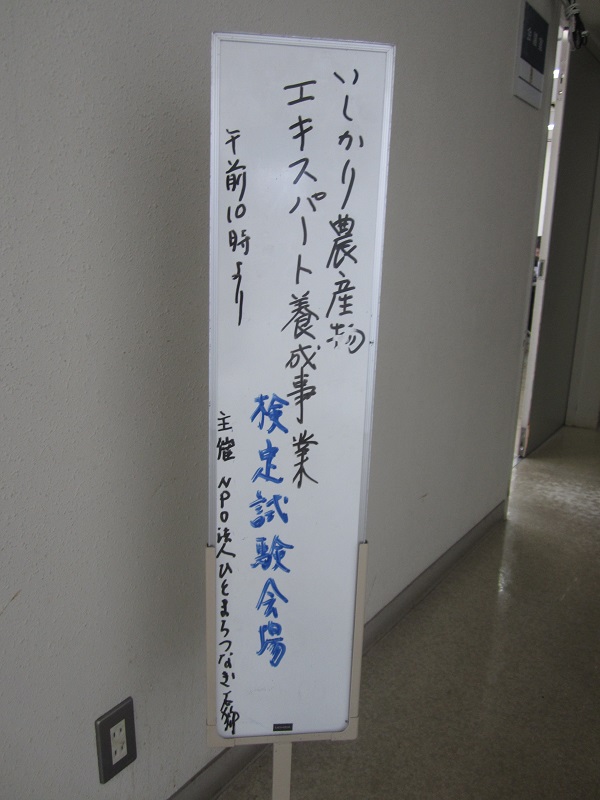 いしかり農産物
エキスパート養成事業
検定試験会場
午前10時より
主催 NPO法人ひとまちつなぎ石狩